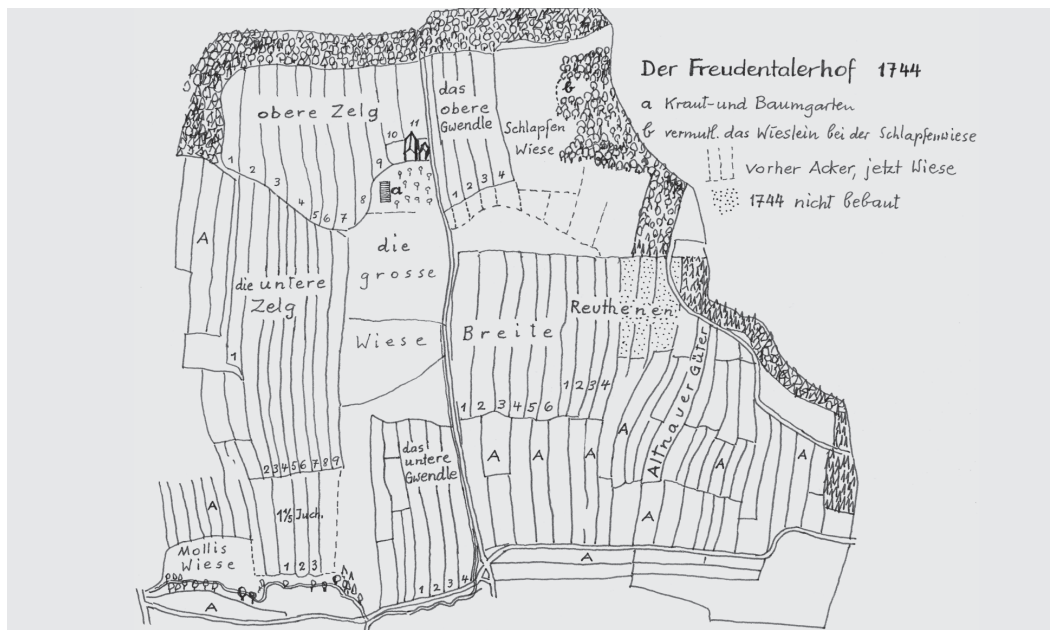 Der Freudentalerhof 1744
a Kraut-und Baumgarten
b vermutl. das Wieslein bei der Schlapfenwiese
vorher Acker, jetzt Wiese
1744 nicht bebaut
obere Zelg
1 2 3 4 5 6 7 8 9 10 11
a
das
obere
Gwendle
1 2 3 4
Schlapfen
Wiese
b
A
die untere
Zelg
1
1
2 3 4 5 6 7 8 9
die
grosse
Wiese
Breite
1 2 3 4 5 6
Reuthenen
1 2 3 4
Altnauer Güter
A
A
A
A
A
A
A
das
untere
Gwendle
1 2 3 4
A
1 1/5 Juch.
1 2 3
Mollis
Wiese
A
A